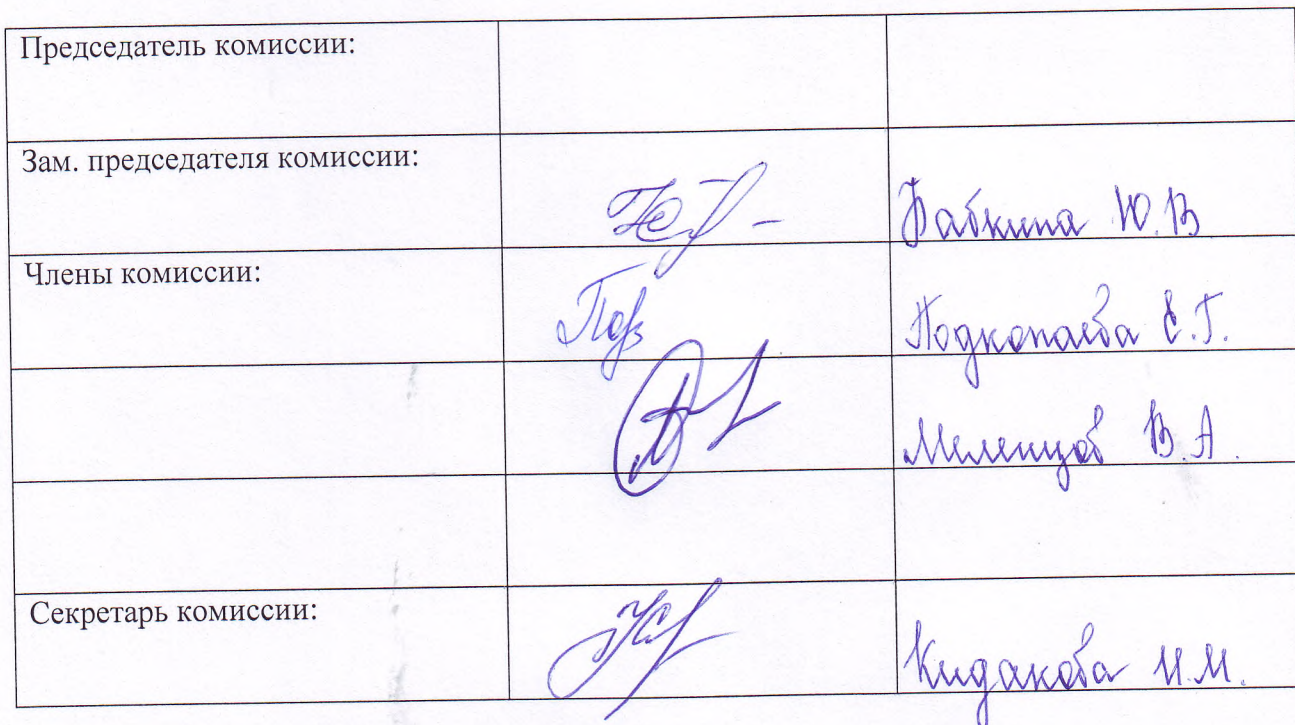 Председатель комиссии:
Зам. председателя комиссии:
Бабкина Ю.В
Члены комиссии:
Подкопаева Е.Г.
Меленцов В.А.
Секретарь комиссии:
Кидакова И.М.